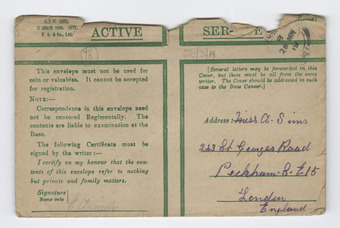 ACTIVE SER
This envelope must not be used for
coin or valuables. It cannot be accepted
for registration.
NOTE:—
Correspondence in this envelope need
not be censored Regimentally. The
contents are liable to examination at the
Base.
The following Certificate must be
signed by the writer:—
I certify on my honour that the con-
tents of this envelope refer to nothing
but private and family matters.
Signature
Name only
(Several letters may be forwarded in this
Cover, but these must all be from the same
writer. The Cover should be addressed in such
case to the Base Censor.)
Address:- Miss A. Sims
243 St Georges Road
Peckham. S. E. 15
London
England